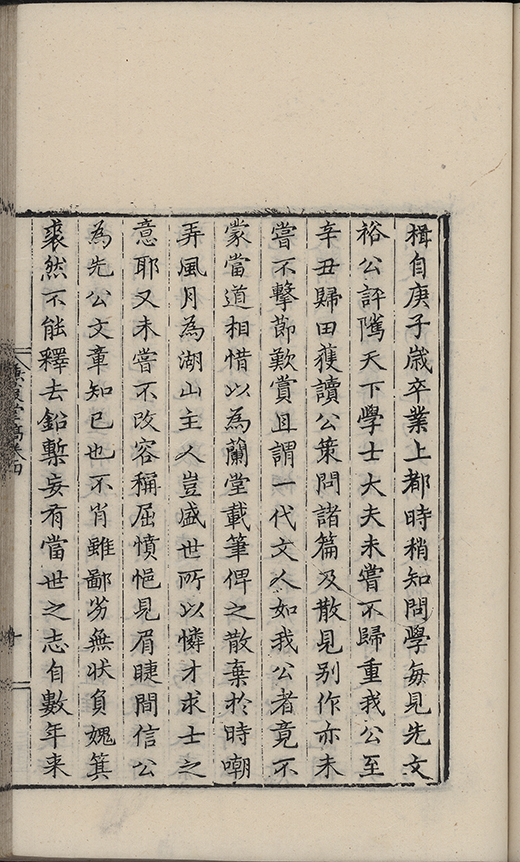 楫自庚子歲卒業上都時稍知問學每見先文
裕公評隲天下學士大夫未嘗不歸重我公至
辛丑歸田獲讀公策問諸篇及散見別作亦未
嘗不擊節歎賞且謂一代文人如我公者竟不
蒙當道相惜以為蘭堂載筆俾之散棄於時嘲
弄風月為湖山主人豈盛世所以憐才求士之
意耶又未嘗不改容稱屈憤悒見眉睫間信公
為先公文章知已也不肖雖鄙劣無狀負媿箕
裘然不能釋去鉛槧妄有當世之志自數年來
堂稿卷四